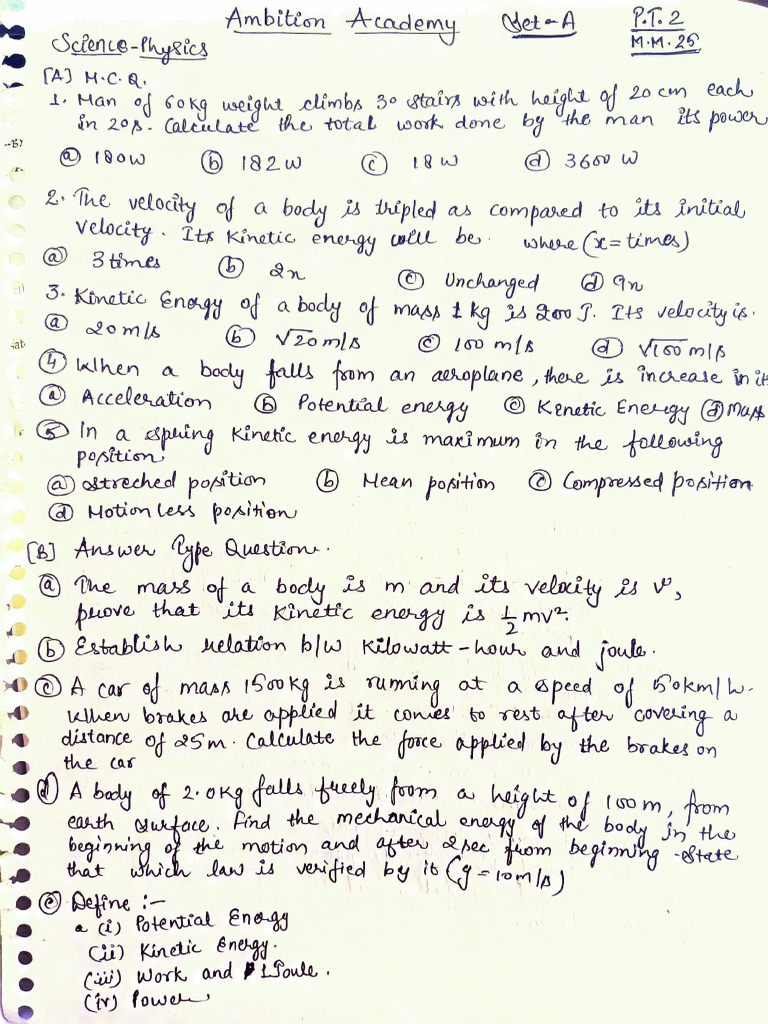 Ambition Academy Set-A P.T.2
M.M.25
Science-Physics
[A] M.C.Q.
1. Man of 60kg weight climbs 30 stairs with height of 20 cm each
in 20s. Calculate the total work done by the man its power
(a) 180W (b) 182W (c) 18W (d) 3600 W
2. The velocity of a body is tripled as compared to its initial
velocity. Its Kinetic energy will be. where (x=times)
(a) 3 times (b) 2x (c) Unchanged (d) 9x
3. Kinetic Energy of a body of mass 1 kg is 200 J. Its velocity is.
(a) 20m/s (b) √20 m/s (c) 100 m/s (d) √100 m/s
(4) When a body falls from an aeroplane, there is increase in it
(a) Acceleration (b) Potential energy (c) Kenetic Energy (d) Mass
(5) In a spring Kinetic energy is maximum in the following
position
(a) streched position (b) Mean position (c) Compressed position
(d) Motionless position
[B] Answer Type Question.
(a) The mass of a body is m and its velocity is v,
prove that its Kinetic energy is 1/2 mv².
(b) Establish relation b/w Kilowatt-hour and joule.
(c) A car of mass 1500kg is running at a speed of 50km/h.
When brakes are applied it comes to rest after covering a
distance of 25m. Calculate the force applied by the brakes on
the car
(d) A body of 2.0kg falls freely from a height of 100m, from
earth surface. Find the mechanical energy of the body in the
beginning of the motion and after 2sec from beginning -State
that which law is verified by it (g=10m/s)
(e) Define :-
(i) Potential Energy
(ii) Kinetic Energy.
(iii) Work and 1 Joule.
(iv) Power